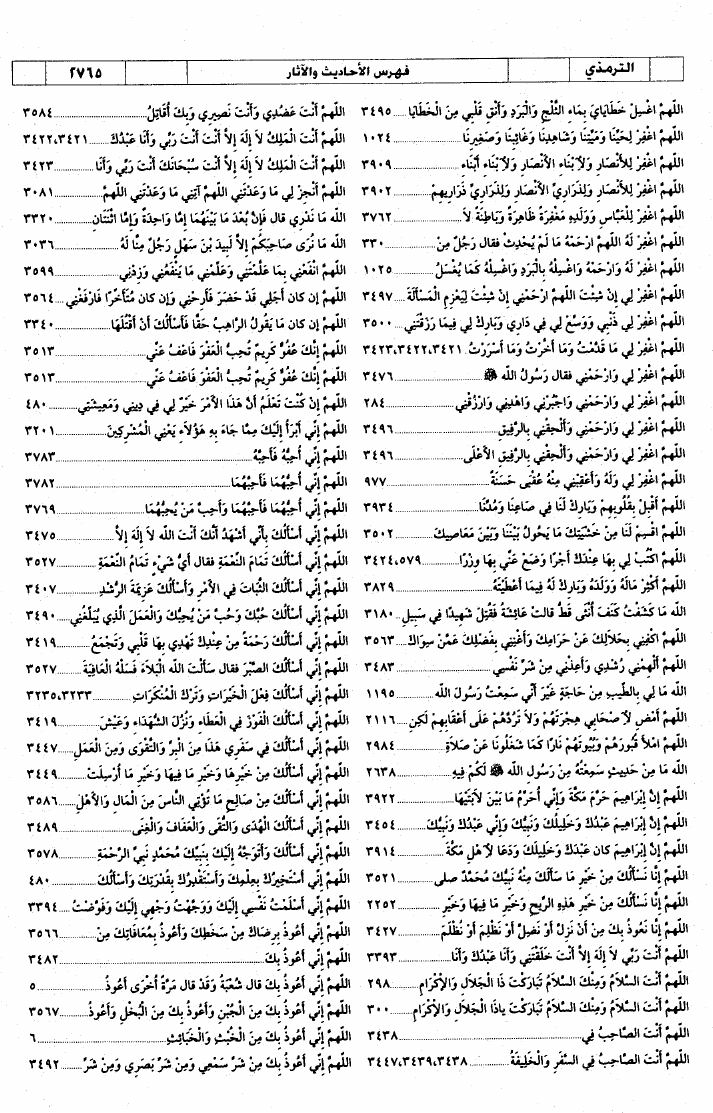 الترمذي
فهرس الأحاديث والآثار
٢٧٦٥
اللهم اغسل خطاياي بماء الثلج والبرد وأنق قلبي من الخطايا ..... ٣٤٩٥
اللهم اغفر لحينا وميتنا وشاهدنا وغائبنا وصغيرنا ..... ١٠٢٤
اللهم اغفر للأنصار ولأبناء الأنصار ولأبناء أبناء ..... ٣٩٠٩
اللهم اغفر للأنصار ولذراري الأنصار ولذراري ذراريهم ..... ٣٩٠٢
اللهم اغفر للعباس وولده مغفرة ظاهرة وباطنة لا ..... ٣٧٦٢
اللهم اغفر له اللهم ارحمه ما لم يحدث فقال رجل من ..... ٣٣٠
اللهم اغفر له وارحمه واغسله بالبرد واغسله كما يغسل ..... ١٠٢٥
اللهم اغفر لي إن شئت اللهم ارحمني إن شئت ليعزم المسألة ..... ٣٤٩٧
اللهم اغفر لي ذنبي ووسع لي في داري وبارك لي فيما رزقتني ..... ٣٥٠٠
اللهم اغفر لي ما قدمت وما أخرت وما أسررت ..... ٣٤٢١،٣٤٢٢،٣٤٢٣
اللهم اغفر لي وارحمني فقال رسول الله ﷺ ..... ٣٤٧٦
اللهم اغفر لي وارحمني واجبرني واهدني وارزقني ..... ٢٨٤
اللهم اغفر لي وارحمني وألحقني بالرفيق ..... ٣٤٩٦
اللهم اغفر لي وارحمني وألحقني بالرفيق الأعلى ..... ٣٤٩٦
اللهم اغفر لي وله وأعقبني منه عقبى حسنة ..... ٩٧٧
اللهم أقبل بقلوبهم وبارك لنا في صاعنا ومدنا ..... ٣٩٣٤
اللهم اقسم لنا من خشيتك ما يحول بيننا وبين معاصيك ..... ٣٥٠٢
اللهم اكتب لي بها عندك أجرا وضع عني بها وزرا ..... ٥٧٩،٣٤٢٤
اللهم أكثر ماله وولده وبارك له فيما أعطيته ..... ٣٨٢٩
الله ما كشفت كنف أنثى قط قالت عائشة فقتل شهيدا في سبيل ..... ٣١٨٠
اللهم اكفني بحلالك عن حرامك وأغنني بفضلك عمن سواك ..... ٣٥٦٣
اللهم ألهمني رشدي وأعذني من شر نفسي ..... ٣٤٨٣
الله ما لي بالطيب من حاجة غير أني سمعت رسول الله ..... ١١٩٥
اللهم أمض لأصحابي هجرتهم ولا تردهم على أعقابهم لكن ..... ٢١١٦
اللهم املأ قبورهم وبيوتهم نارا كما شغلونا عن صلاة ..... ٢٩٨٤
الله ما من حديث سمعته من رسول الله ﷺ لكم فيه ..... ٢٦٣٨
اللهم إن إبراهيم حرم مكة وإني أحرم ما بين لابتيها ..... ٣٩٢٢
اللهم إن إبراهيم عبدك وخليلك ونبيك وإني عبدك ونبيك ..... ٣٤٥٤
اللهم إن إبراهيم كان عبدك وخليلك ودعا لأهل مكة ..... ٣٩١٤
اللهم إنا نسألك من خير ما سألك منه نبيك محمد صلى ..... ٣٥٢١
اللهم إنا نسألك من خير هذه الريح وخير ما فيها وخير ..... ٢٢٥٢
اللهم إنا نعوذ بك من أن نزل أو نضل أو نظلم أو نظلم ..... ٣٤٢٧
اللهم أنت ربي لا إله إلا أنت خلقتني وأنا عبدك وأنا ..... ٣٣٩٣
اللهم أنت السلام ومنك السلام تباركت ذا الجلال والإكرام ..... ٢٩٨
اللهم أنت السلام ومنك السلام تباركت ياذا الجلال والإكرام ..... ٣٠٠
اللهم أنت الصاحب في ..... ٣٤٣٨
اللهم أنت الصاحب في السفر والخليفة ..... ٣٤٣٨،٣٤٣٩،٣٤٤٧
اللهم أنت عضدي وأنت نصيري وبك أقاتل ..... ٣٥٨٤
اللهم أنت الملك لا إله إلا أنت أنت ربي وأنا عبدك ..... ٣٤٢١،٣٤٢٢
اللهم أنت الملك لا إله إلا أنت سبحانك أنت ربي وأنا ..... ٣٤٢٣
اللهم أنجز لي ما وعدتني اللهم آتني ما وعدتني اللهم ..... ٣٠٨١
الله ما ندري قال فإن بعد ما بينهما إما واحدة وإما اثنتان ..... ٣٣٢٠
الله ما نرى صاحبكم إلا لبيد بن سهل رجل منا له ..... ٣٠٣٦
اللهم انفعني بما علمتني وعلمني ما ينفعني وزدني ..... ٣٥٩٩
اللهم إن كان أجلي قد حضر فأرحني وإن كان متأخرا فارفغني ..... ٣٥٦٤
اللهم إن كان ما يقول الراهب حقا فأسألك أن أقتلها ..... ٣٣٤٠
اللهم إنك عفو كريم تحب العفو فاعف عني ..... ٣٥١٣
اللهم إنك عفو كريم تحب العفو فاعف عني ..... ٣٥١٣
اللهم إن كنت تعلم أن هذا الأمر خير لي في ديني ومعيشتي ..... ٤٨٠
اللهم إني أبرأ إليك مما جاء به هؤلاء يعني المشركين ..... ٣٢٠١
اللهم إني أحبه فأحبه ..... ٣٧٨٣
اللهم إني أحبهما فأحبهما ..... ٣٧٨٢
اللهم إني أحبهما فأحبهما وأحب من يحبهما ..... ٣٧٦٩
اللهم إني أسألك بأني أشهد أنك أنت الله لا إله إلا ..... ٣٤٧٥
اللهم إني أسألك تمام النعمة فقال أي شيء تمام النعمة ..... ٣٥٢٧
اللهم إني أسألك الثبات في الأمر وأسألك عزيمة الرشد ..... ٣٤٠٧
اللهم إني أسألك حبك وحب من يحبك والعمل الذي يبلغني ..... ٣٤٩٠
اللهم إني أسألك رحمة من عندك تهدي بها قلبي وتجمع ..... ٣٤١٩
اللهم إني أسألك الصبر فقال سألت الله البلاء فسله العافية ..... ٣٥٢٧
اللهم إني أسألك فعل الخيرات وترك المنكرات ..... ٣٢٣٣،٣٢٣٥
اللهم إني أسألك الفوز في العطاء ونزل الشهداء وعيش ..... ٣٤١٩
اللهم إني أسألك في سفري هذا من البر والتقوى ومن العمل ..... ٣٤٤٧
اللهم إني أسألك من خيرها وخير ما فيها وخير ما أرسلت ..... ٣٤٤٩
اللهم إني أسألك من صالح ما تؤتي الناس من المال والأهل ..... ٣٥٨٦
اللهم إني أسألك الهدى والتقى والعفاف والغنى ..... ٣٤٨٩
اللهم إني أسألك وأتوجه إليك بنبيك محمد نبي الرحمة ..... ٣٥٧٨
اللهم إني أستخيرك بعلمك وأستقدرك بقدرتك وأسألك ..... ٤٨٠
اللهم إني أسلمت نفسي إليك ووجهت وجهي إليك وفوضت ..... ٣٣٩٤
اللهم إني أعوذ برضاك من سخطك وأعوذ بمعافاتك من ..... ٣٥٦٦
اللهم إني أعوذ بك ..... ٣٤٨٢
اللهم إني أعوذ بك قال شعبة وقد قال مرة أخرى أعوذ ..... ٥
اللهم إني أعوذ بك من الجبن وأعوذ بك من البخل وأعوذ ..... ٣٥٦٧
اللهم إني أعوذ بك من الخبث والخبائث ..... ٦
اللهم إني أعوذ بك من شر سمعي ومن شر بصري ومن شر ..... ٣٤٩٢